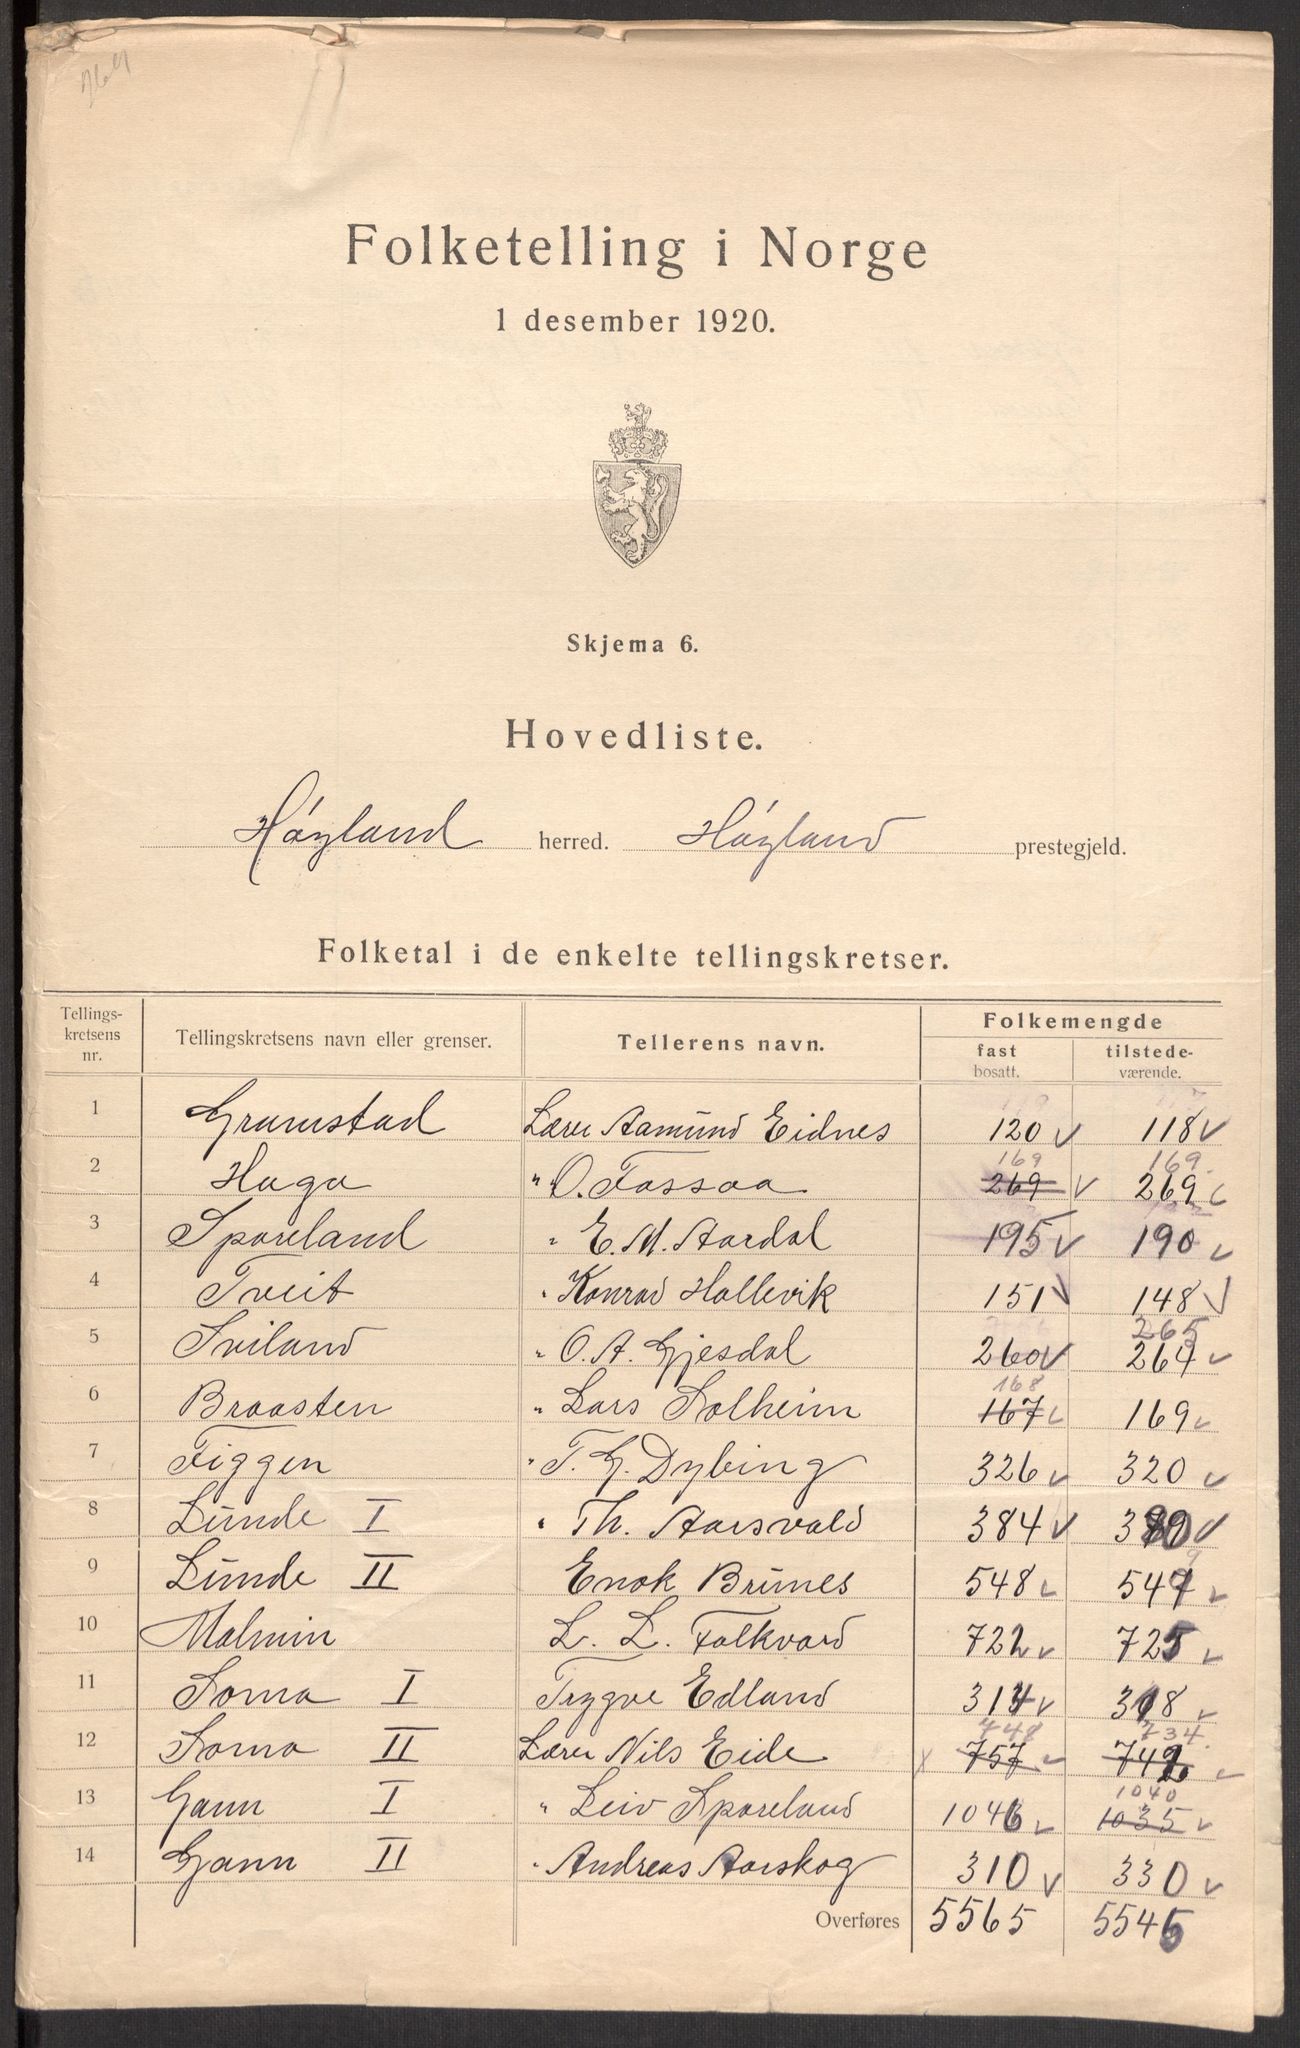 Folketelling i Norge
1 desember 1920.
Skjema 6.
Hovedliste.
Høyland herred. Høyland prestegjeld.
Folketal i de enkelte tellingskretser.
Tellings-kretsens nr. Tellingskretsens navn eller grenser. Tellerens navn. Folkemengde
fast bosatt. tilstede-værende.
1 Gramstad Lærer Aamund Eidnes 120 118
169 169.
2 Haga " O. Fossaa 269 269
3 Sporeland " E. M. Aardal 195 190
4 Tveit " Konrad Hallevik 151 148
265
5 Sviland " O. A. Gjesdal 260 264
168
6 Braasten " Lars Solheim 167 169
7 Figgen " T. G. Dybing 326 320
8 Lunde I " Th. Aarsvold 384
9 Lunde II Enok Brunes 548
10 Malmin L. L. Folkvord 722 725
11 Soma I Trygve Edland 314 318
748 734.
12 Soma II Lærer Nils Eide 757 742
1040
13 Gann I " Leiv Sporeland 1046 1035
14 Gann II " Andreas Aarskog 310 330
Overføres 5565 5545